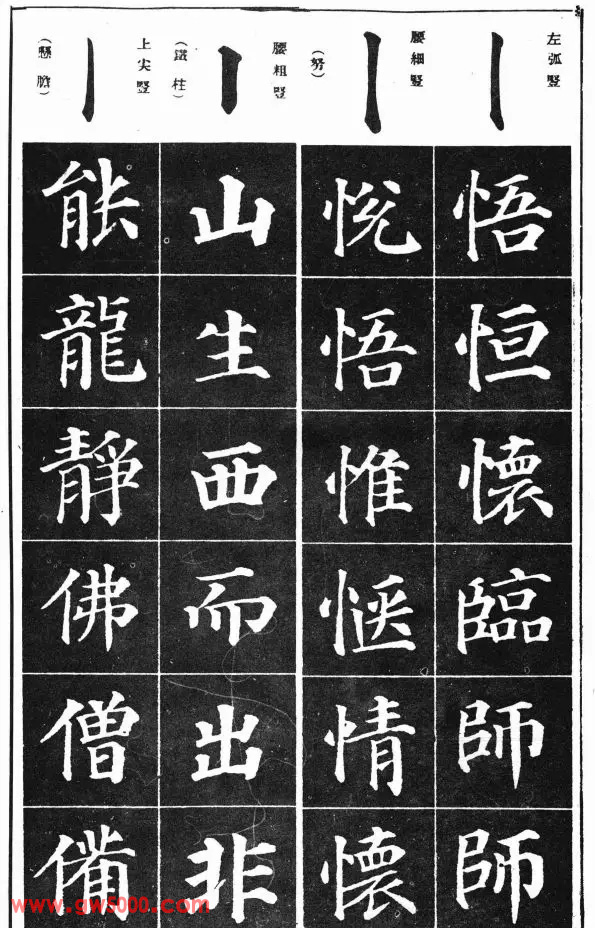 左弧豎
悟恒懷臨師師
腰細豎
(努)
悅悟惟愜情懷
腰粗豎
(鐵柱)
山生西而出非
上尖豎
(懸膽)
能龍靜佛僧備
www.gw5000.com